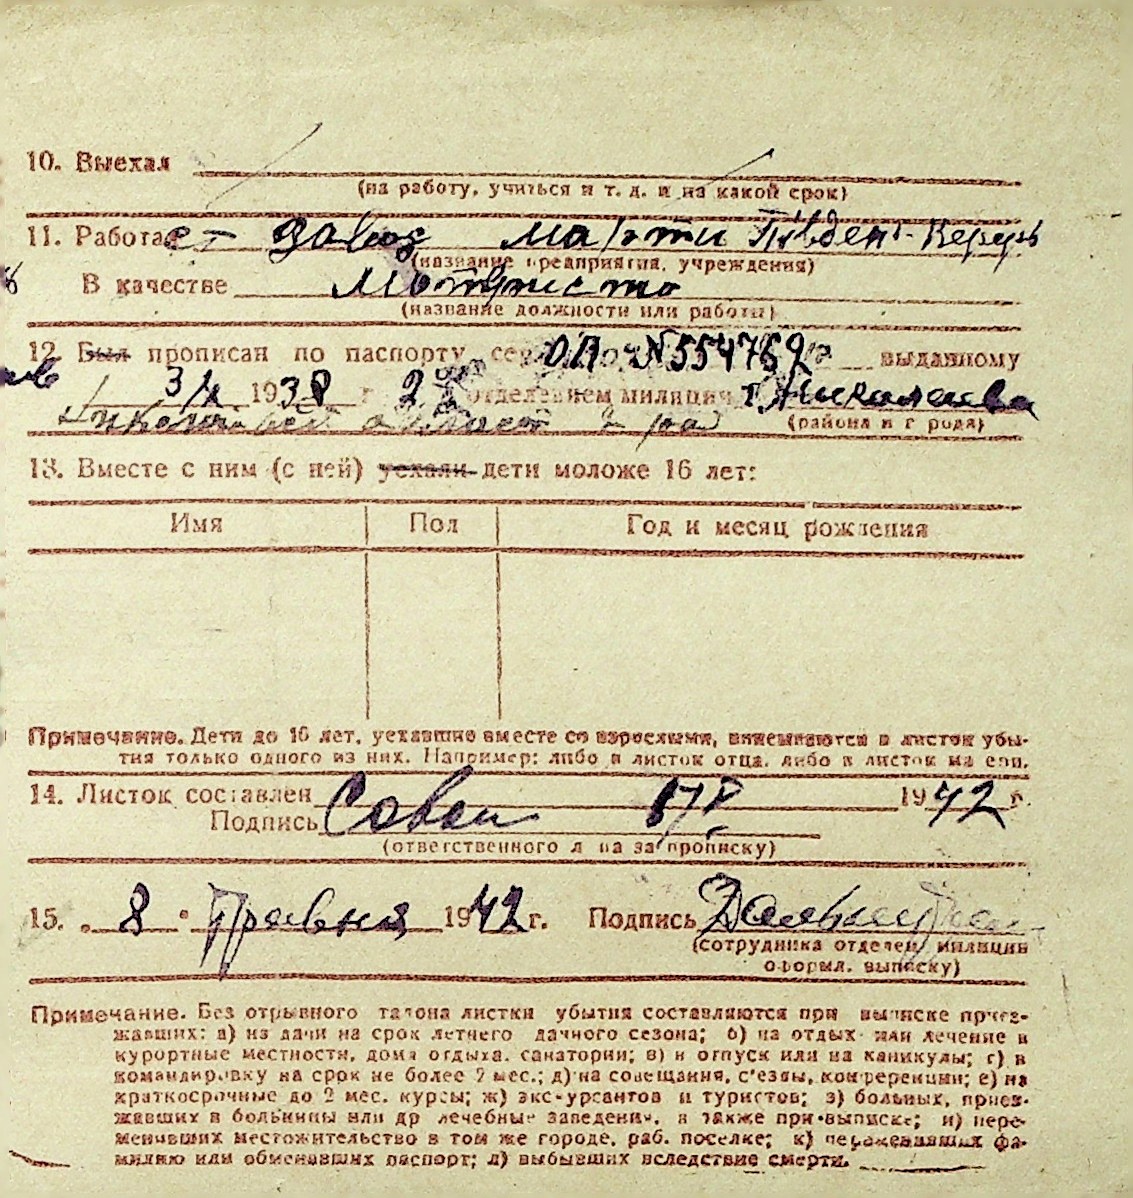 10. Выехал
(на работу, учиться и т. д. и на какой срок)
11. Работает завод Марти Південн- Верфь
(название предприятия, учреждения)
В качестве
(название должности или работы)
12. Был прописан по паспорту сер ОЛ № 554769 выданному
3/X 1938 г 2 отделением милиции г. Николаева
(района и города)
13. Вместе с ним (с ней) уехали дети моложе 16 лет:
Имя Пол Год и месяц рождения
Примечание. Дети до 16 лет, уехавшие вместе со взрослыми, вписываются в листок убы-
тия только одного из них. Например: либо в листок отца, либо в листок матери.
14. Листок составлен 1942 г.
Подпись
(ответственного лица за прописку)
15. „ 8 " Травня 1942 г. Подпись
(сотрудника отделен. милиции
оформл. выписку)
Примечание. Без отрывного талона листки убытия составляются при выписке приез-
жавших: а) из дачи на срок летнего дачного сезона; б) на отдых или лечение в
курортные местности, дома отдыха, санатории; в) в отпуск или на каникулы; г) в
командировку на срок не более 2 мес.; д) на совещания, с'езды, конференции; е) на
краткосрочные до 2 мес. курсы; ж) экскурсантов и туристов; з) больных, приез-
жавших в больницы или др лечебные заведения, а также при выписке; и) пере-
менивших местожительство в том же городе, раб. поселке; к) переменивших фа-
милию или обменявших паспорт; л) выбывших вследствие смерти.